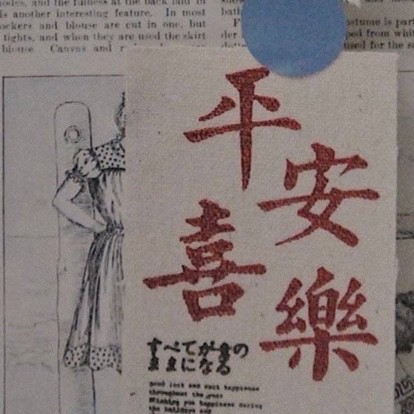 and the fulness at the back laid in
is another interesting feature. In most
ockers and blouse are cut in one, but
tights, and when they are used the skirt
blouse. Canvas and
ostume is par
der
ped from whi
used for the s
平安
喜樂
すべてが
ままになる
good luck and happiness
throughout the year
Wishing you happiness during
the holidays and